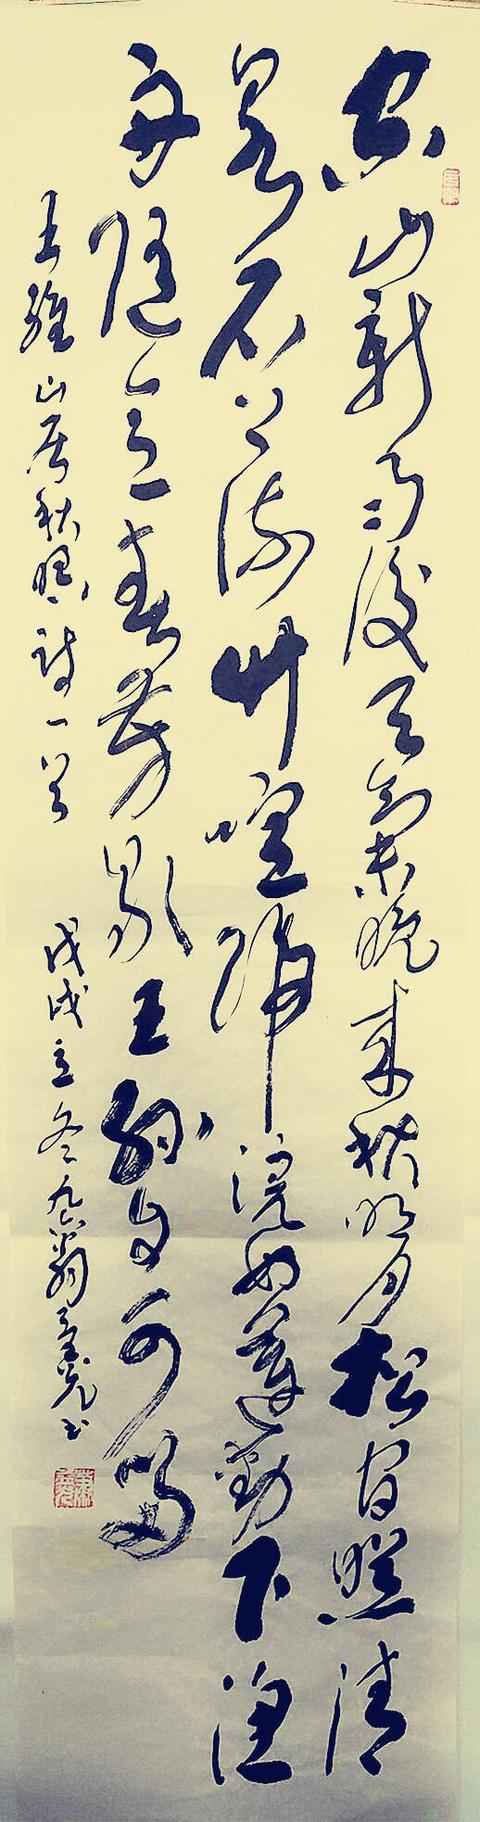 空山新雨後天氣晚來秋明月松間照清
泉石上流竹喧歸浣女蓮動下漁
舟隨意春芳歇王孫自可留
王維山居秋暝詩一首 戊戌立冬 翁 书